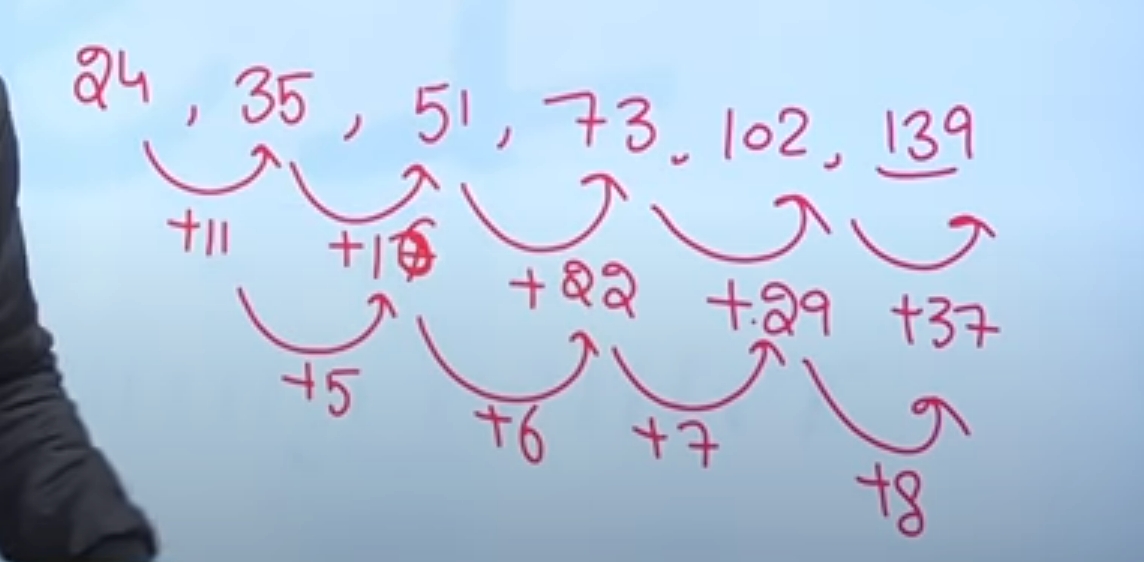 24, 35, 51, 73, 102, 139
+11 +16 +22 +29 +37
+5 +6 +7 +8